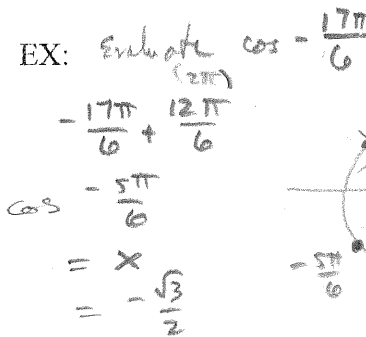 EX: Evaluate cos - 17π/6
(2π)
- 17π/6 + 12π/6
cos - 5π/6
= x
= - √3/2
- 5π/6